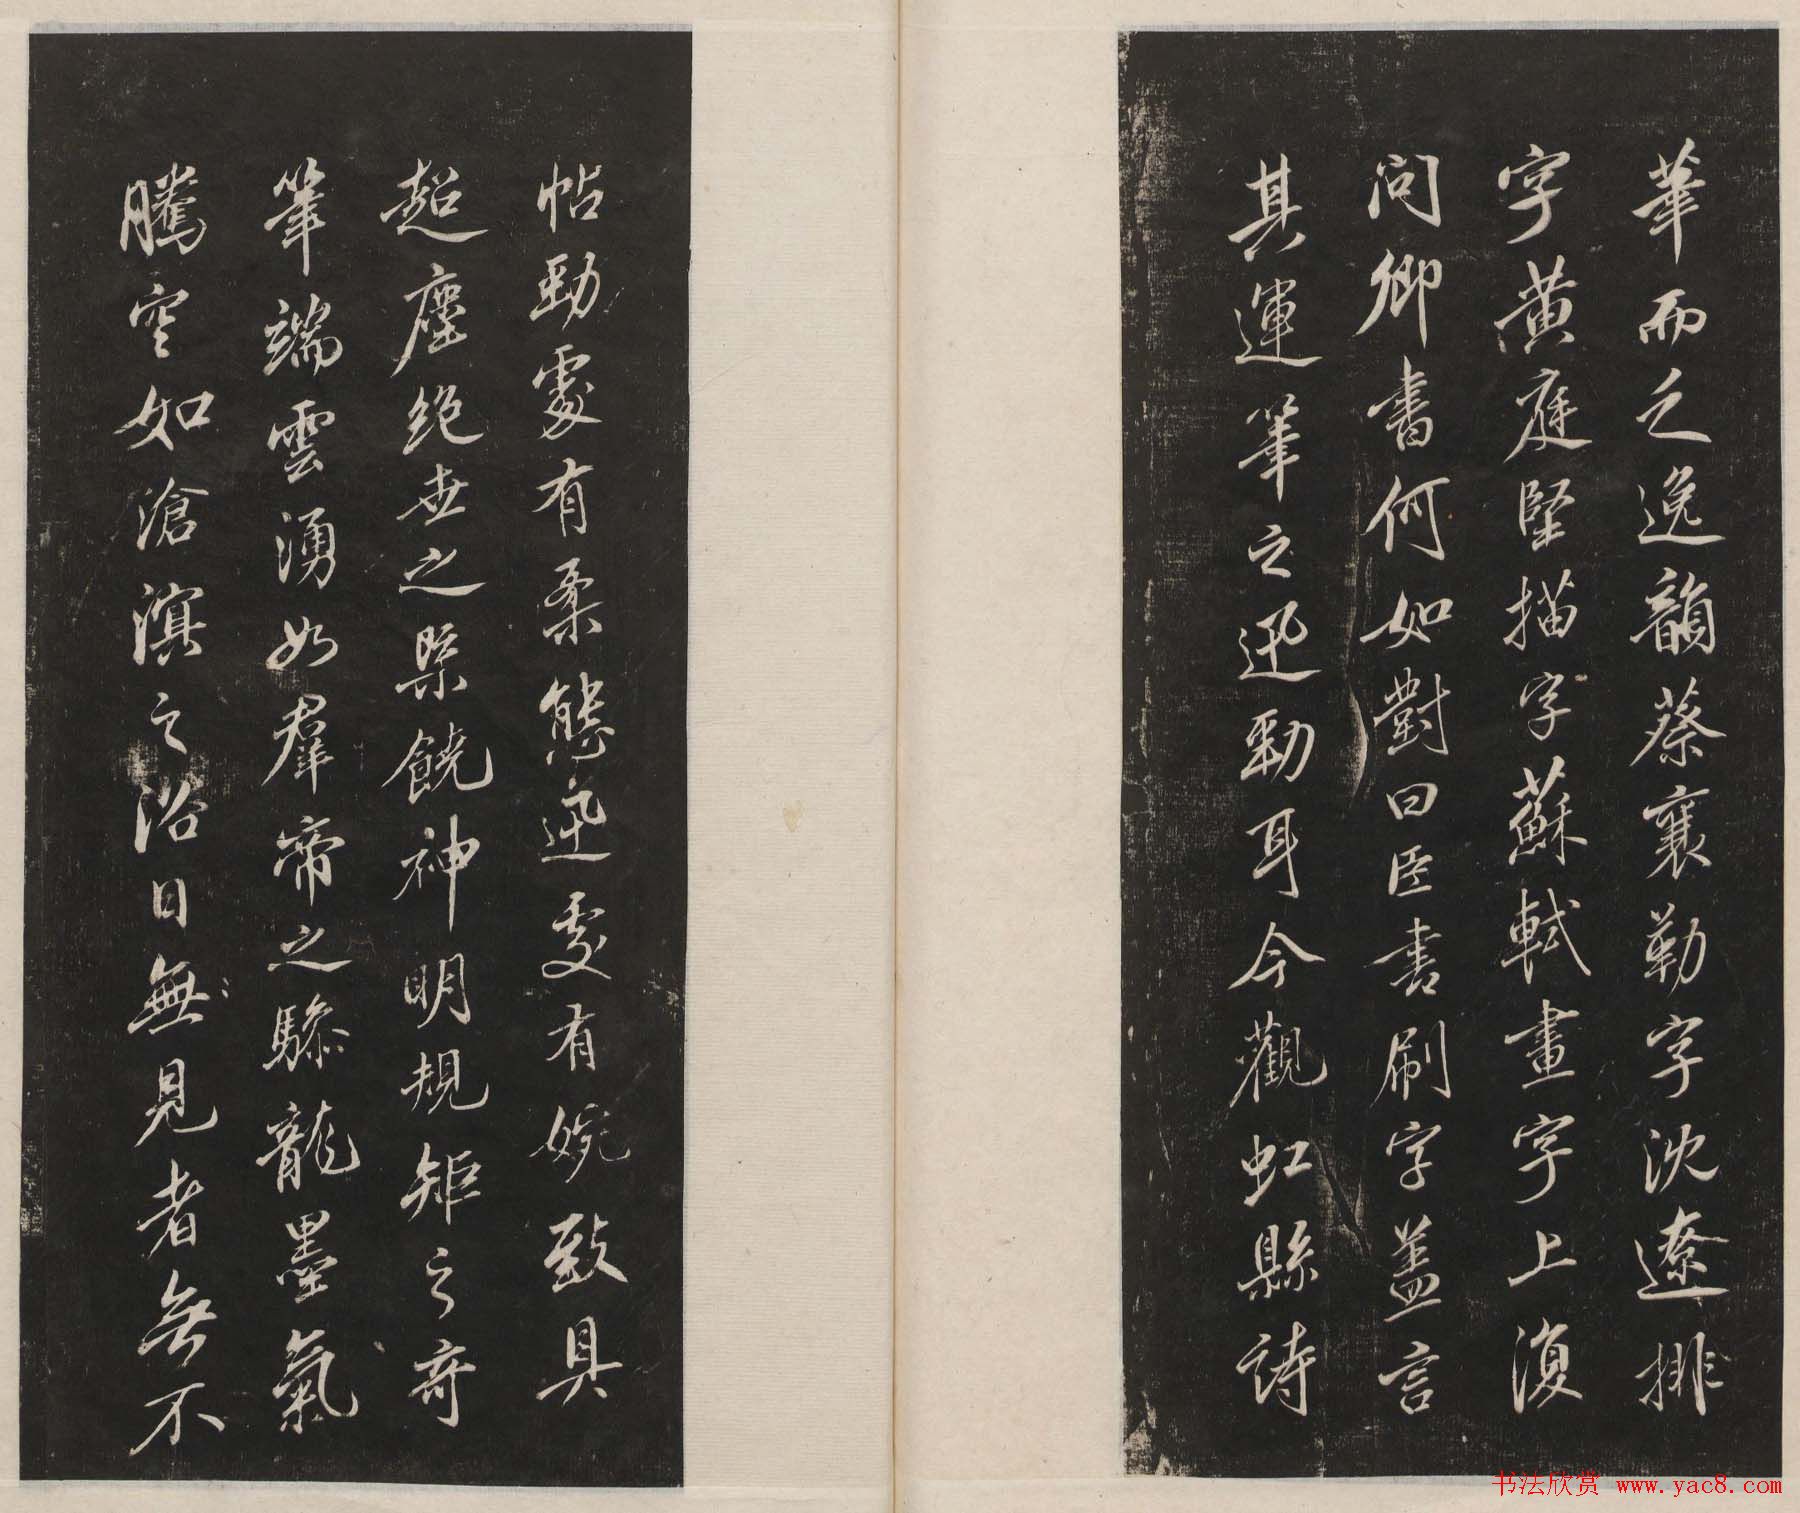 華而之逸韻蔡襄勒字沈遼排
字黃庭堅描字蘇軾畫字上復
問卿書何如對曰臣書刷字蓋言
其運筆之迅勁耳今觀虹縣詩
帖勁處有柔態迅處有婉致具
超塵絕世之槩饒神明規矩之奇
筆端雲湧如羣帝之驂龍墨氣
騰空如滄溟之浴日無見者無不
书法欣赏 www.yac8.com